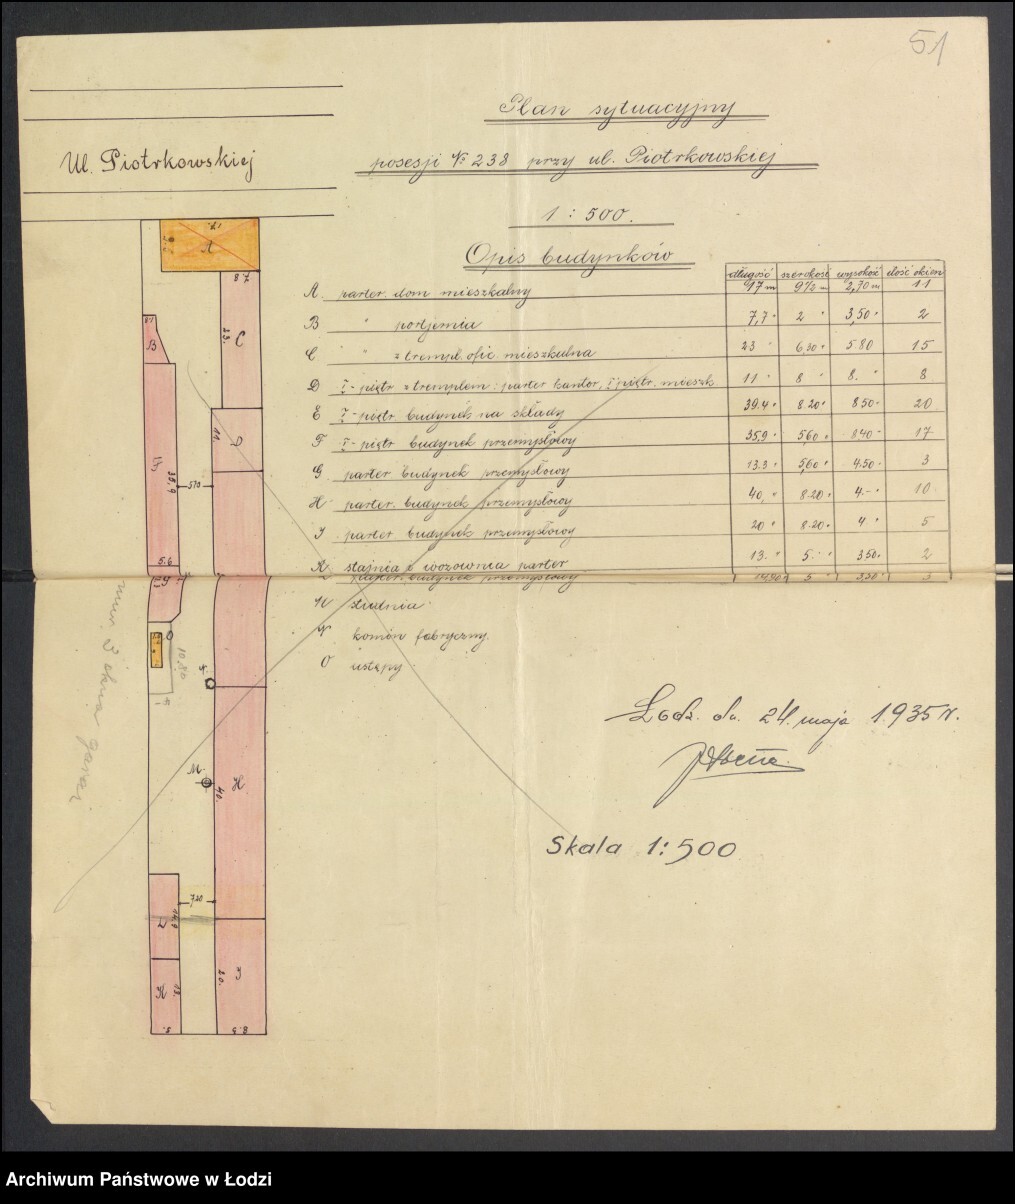 51
Ul. Piotrkowskiej
Plan sytuacyjny
posesji № 238 przy ul. Piotrkowskiej
1 : 500.
Opis budynków
długość szerokość wysokość ilość okien
A. parter. dom mieszkalny 17 m 9½ m 2,70 m 11
B " portjernia 7,7 " 2 " 3,50 " 2
C " z trempl. ofic. mieszkalna 23 " 6.30 " 5.80 15
D I - piętr. z tremplem : parter kantor, I piętr. mieszk. 11 " 8 " 8. " 8
E I - piętr budynek na składy 39.4 " 8.20 " 8.50 " 20
F I - piętr budynek przemysłowy 35,9 " 5,60 " 8.40 " 17
G parter. budynek przemysłowy 13.3 " 5,60 " 4.50 " 3
H parter. budynek przemysłowy 40, " 8.20 " 4. - " 10
J parter budynek przemysłowy 20 " 8.20 " 4 " 5
K stajnia i wozownia parter 13. " 5. " 3.50 " 2
L parter. budynek przemysłowy 14,90 " 5 " 3,50 " 3
M studnia
N komin fabryczny.
O ustępy
Łódź. dn. 24. maja 1935 r.
Skala 1:500
17.
7.8
23.
C
B
11
35,9
570
5.6
O
10.80
mur 3 okna
M.
H
40.
720
14.9
20.
K
13.
5.
8.5
Archiwum Państwowe w Łodzi